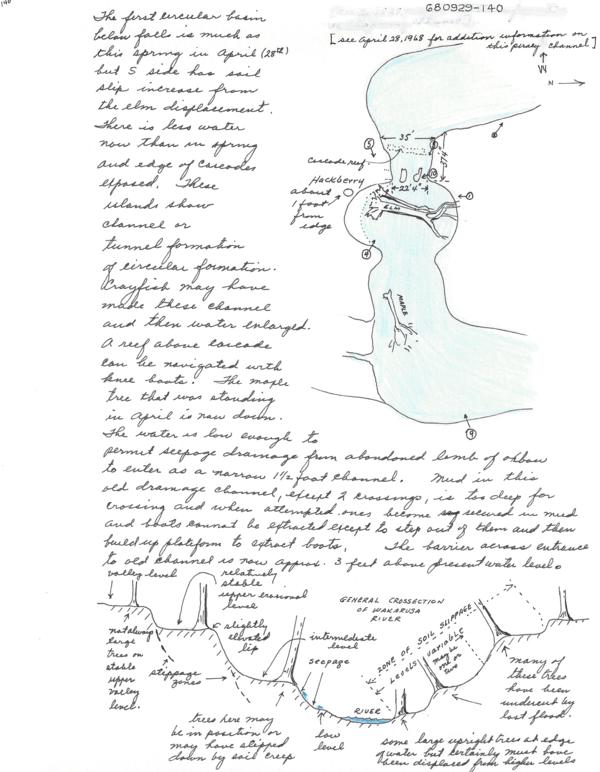 140
680929-140
[see April 28, 1968 for addition information on
this jersey channel]
The first circular basin
below falls is much as
this spring in April (28th)
but S side has soil
slip increase from
the elm displacement.
There is less water
now than in spring
and edge of cascades
exposed. These
islands show
channel or
tunnel formation
of circular formation.
Crayfish may have
made these channel
and then water enlarged.
A reef above cascade
can be navigated with
knee boots. The maple
tree that was standing
in April is now down.
The water is low enough to
permit seepage drainage from abandoned limb of oxbow
to enter as a narrow 1½ foot channel. Mud in this
old drainage channel, except 2 crossings, is too deep for
crossing and when attempted ones become so secured in mud
and boots cannot be extracted except to step out of them and then
build up platform to extract boots. The barrier across entrance
to old channel is now approx. 3 feet above present water level.
W
N
35'
5
Cascade reef
37'4"
10
Hackberry
about
1 foot
from
edge
22'4"
ELM
1
4
MAPLE
9
valley level
relatively
stable
upper erosional
level
GENERAL CROSSECTION
OF WAKARUSA
RIVER
slightly
elevated
lip
intermediate
level
seepage
not always
large
trees on
stable
upper
valley
level.
slippage
zones
ZONE OF SOIL SLIPPAGE
LEVELS VARIABLE
may be
one or
two
many of
these trees
have been
undercut by
last flood.
RIVER
low
level
trees here may
be in position or
may have slipped
down by soil creep
some large upright trees at edge
of water but certainly must have
been displaced from higher levels